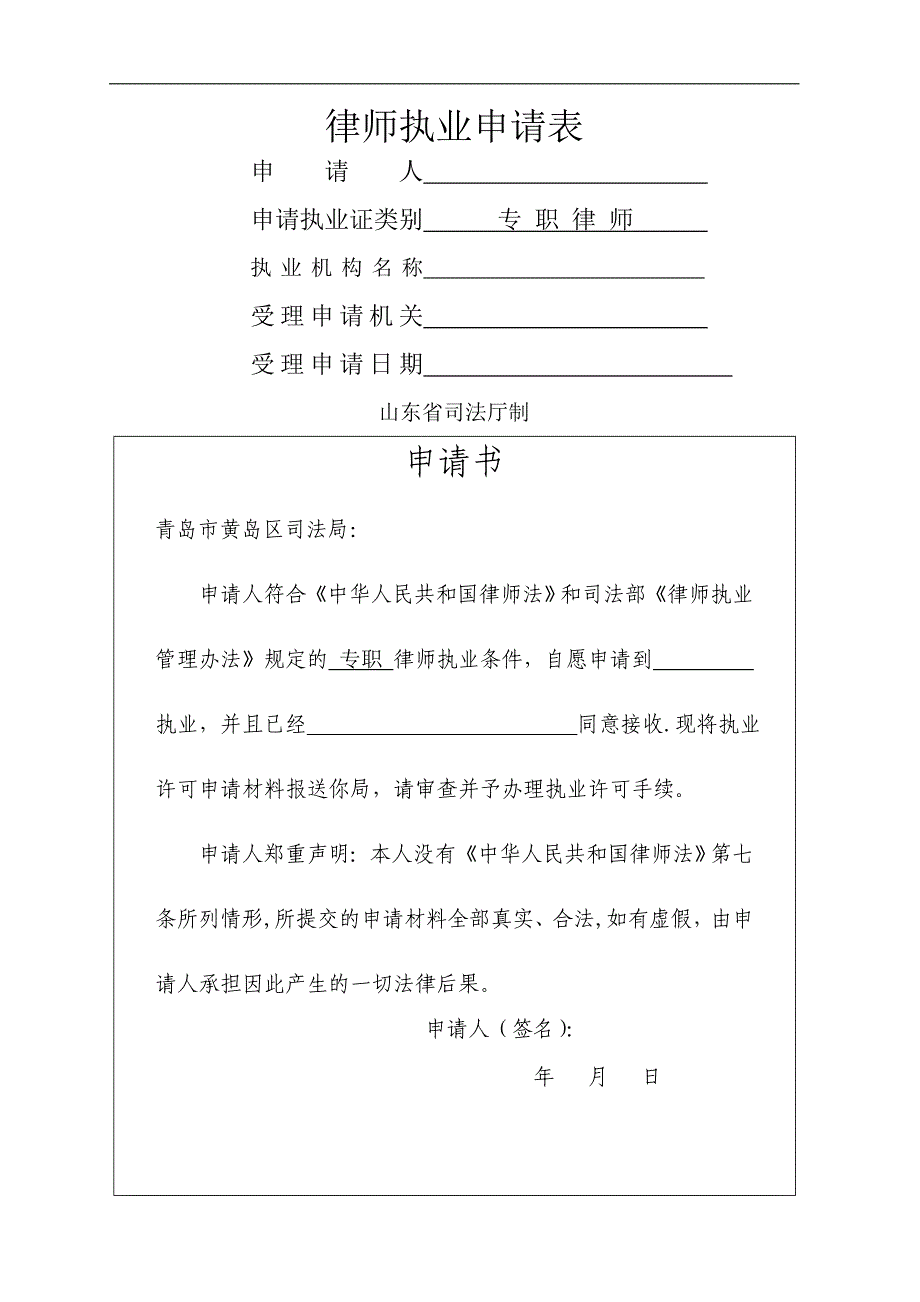 律师执业申请表
申请人
申请执业证类别 专职律师
执业机构名称
受理申请机关
受理申请日期
山东省司法厅制
申请书
青岛市黄岛区司法局：
申请人符合《中华人民共和国律师法》和司法部《律师执业
管理办法》规定的 专职 律师执业条件，自愿申请到
执业，并且已经 同意接收.现将执业
许可申请材料报送你局，请审查并予办理执业许可手续。
申请人郑重声明：本人没有《中华人民共和国律师法》第七
条所列情形,所提交的申请材料全部真实、合法,如有虚假，由申
请人承担因此产生的一切法律后果。
申请人（签名）：
年 月 日